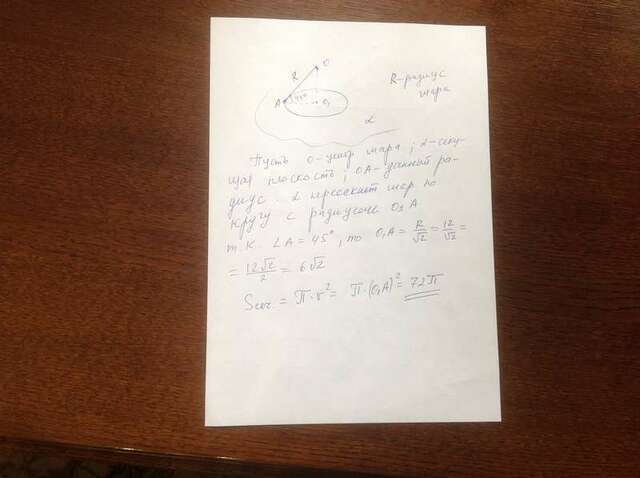 O
R
A 45° O₁
R-радиус
шара
α
Пусть O-центр шара; α-секу-
щая плоскость; OA-данный ра-
диус. α пересекает шар по
кругу с радиусом O₁A
т.к. ∠A = 45°, то O₁A = R/√2 = 12/√2 =
= 12√2/2 = 6√2
Sсеч. = π·r² = π·(O₁A)² = 72π